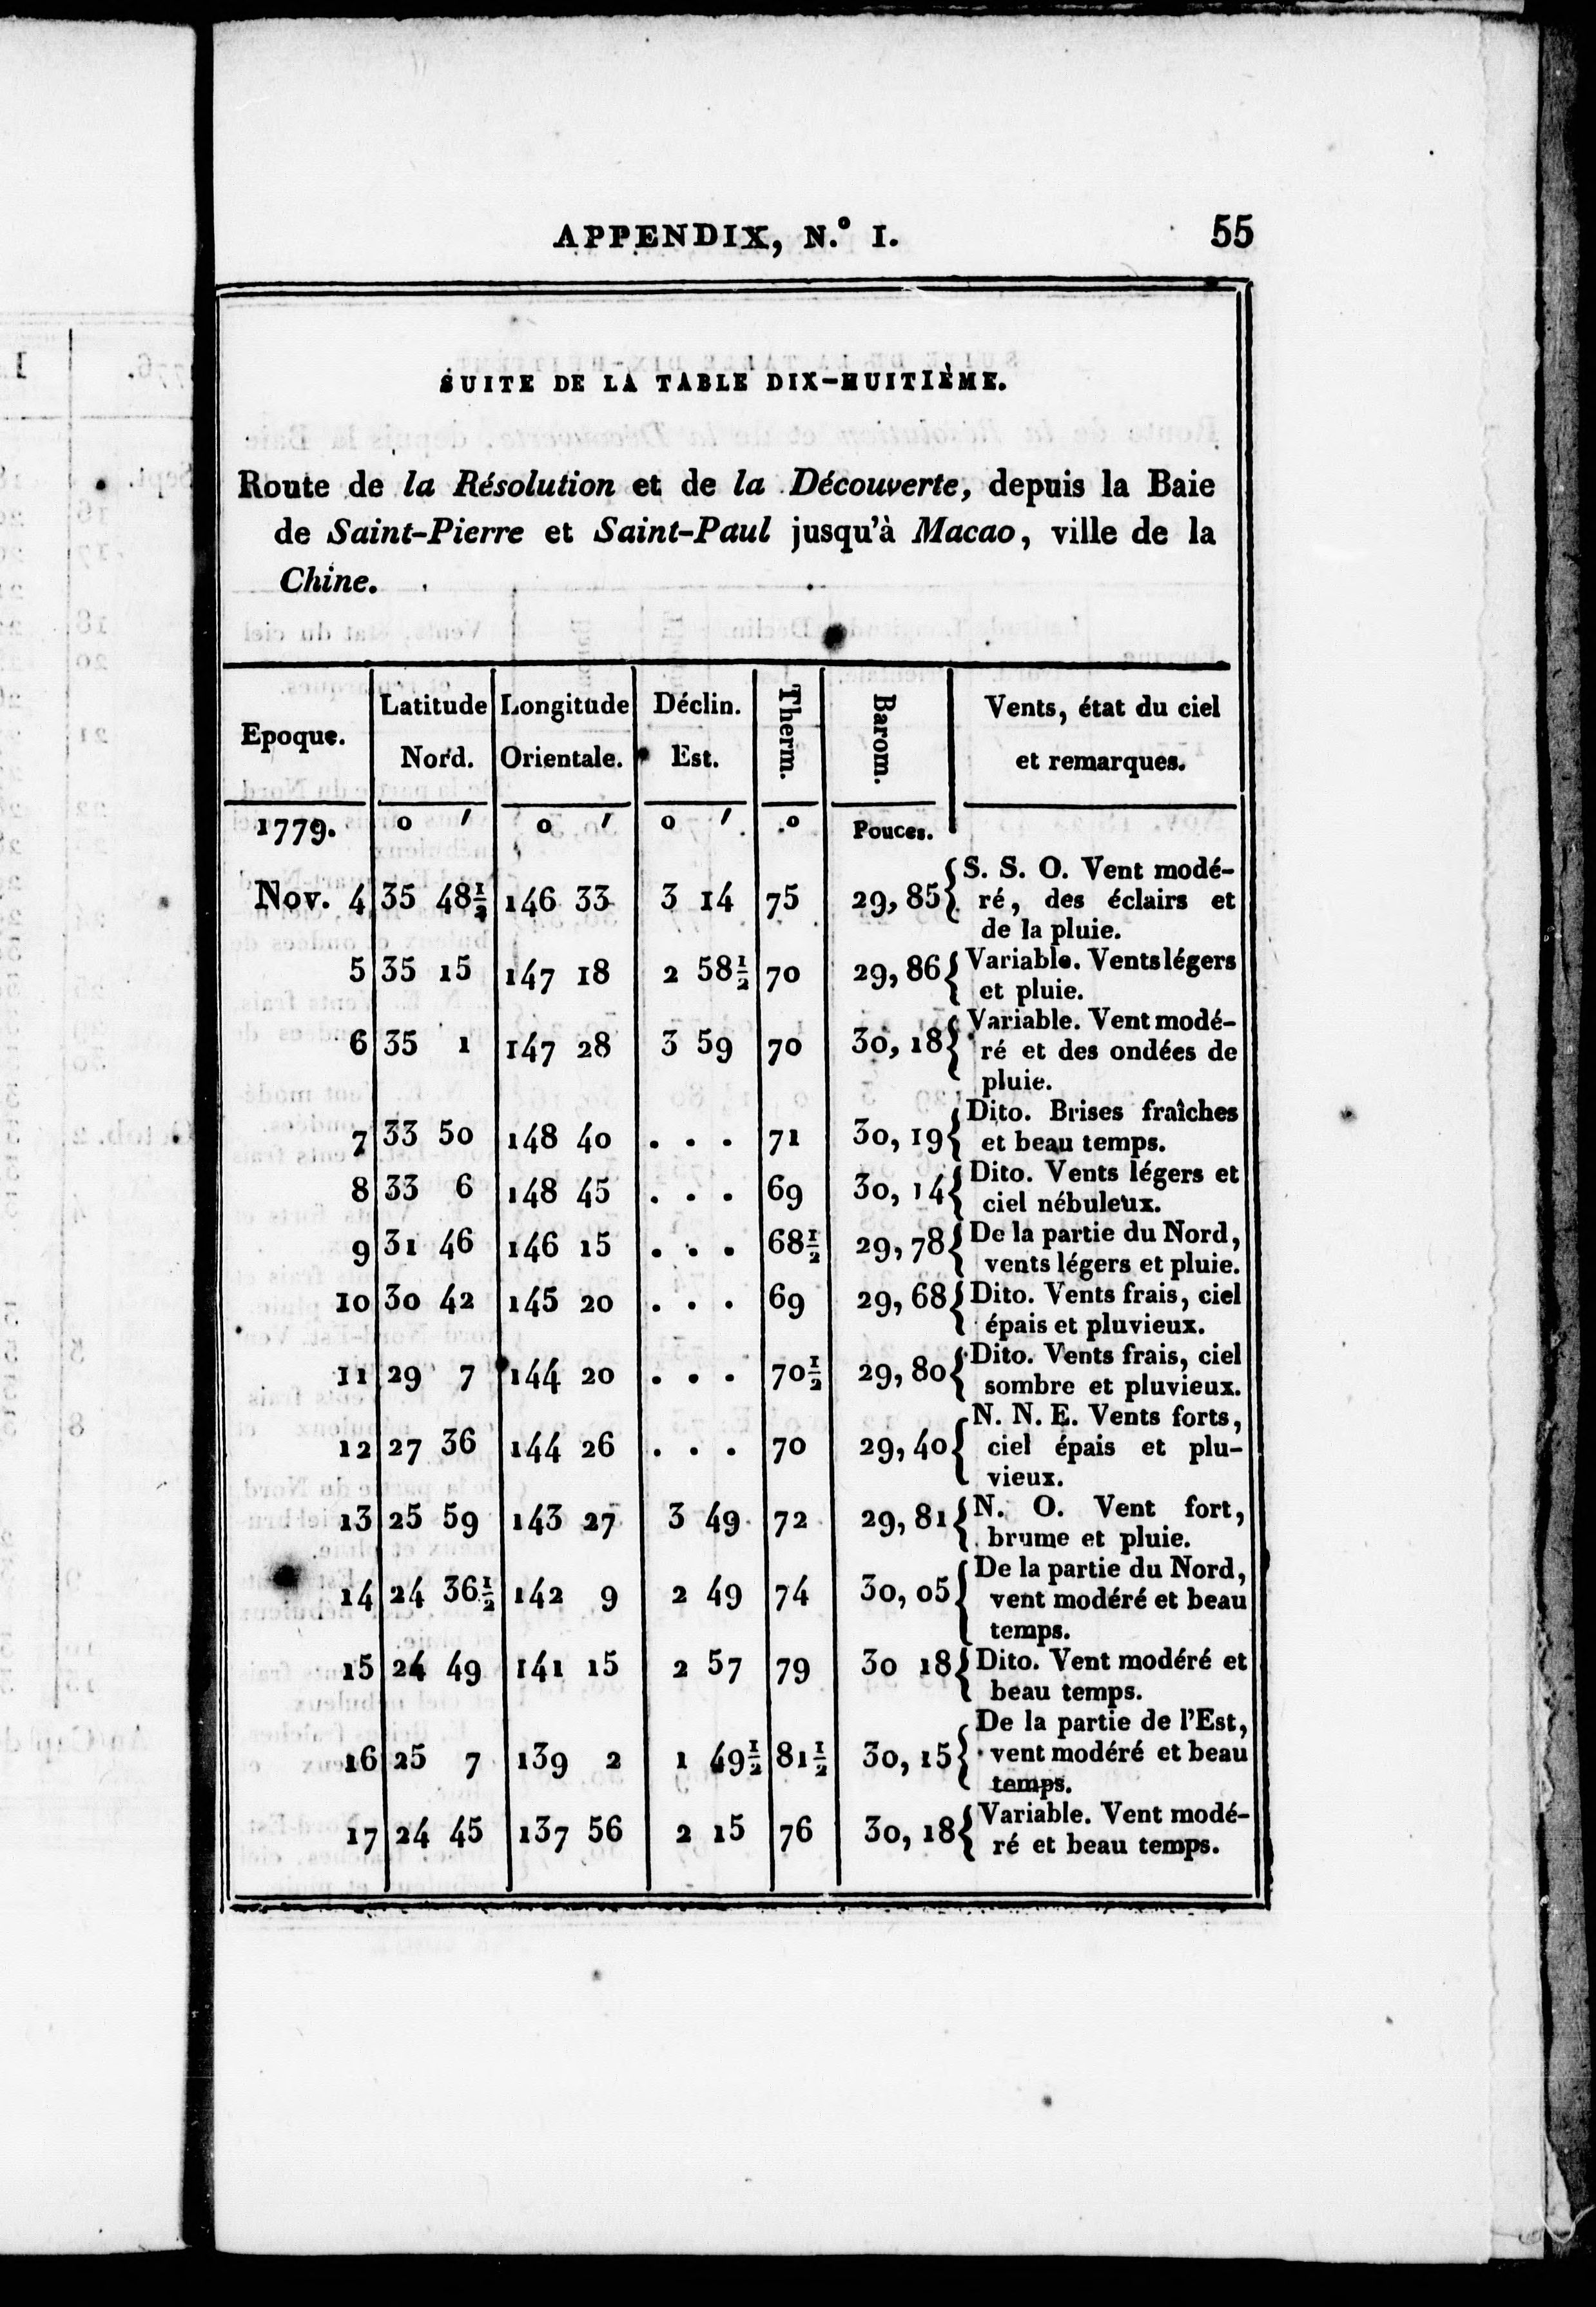 APPENDIX, N.º I. 55
SUITE DE LA TABLE DIX-HUITIÈME.
Route de la Résolution et de la Découverte, depuis la Baie
de Saint-Pierre et Saint-Paul jusqu'à Macao, ville de la
Chine.
Epoque. Latitude Nord. Longitude Orientale. Déclin. Est. Therm. Barom. Vents, état du ciel et remarques.
1779. o ′ o ′ o ′ o Pouces.
Nov. 4 35 48½ 146 33 3 14 75 29,85 S. S. O. Vent modé-
ré, des éclairs et
de la pluie.
5 35 15 147 18 2 58½ 70 29,86 Variable. Vents légers
et pluie.
6 35 1 147 28 3 59 70 30,18 Variable. Vent modé-
ré et des ondées de
pluie.
7 33 50 148 40 . . . 71 30,19 Dito. Brises fraîches
et beau temps.
8 33 6 148 45 . . . 69 30,14 Dito. Vents légers et
ciel nébuleux.
9 31 46 146 15 . . . 68½ 29,78 De la partie du Nord,
vents légers et pluie.
10 30 42 145 20 . . . 69 29,68 Dito. Vents frais, ciel
épais et pluvieux.
11 29 7 144 20 . . . 70½ 29,80 Dito. Vents frais, ciel
sombre et pluvieux.
12 27 36 144 26 . . . 70 29,40 N. N. E. Vents forts,
ciel épais et plu-
vieux.
13 25 59 143 27 3 49 72 29,81 N. O. Vent fort,
brume et pluie.
14 24 36½ 142 9 2 49 74 30,05 De la partie du Nord,
vent modéré et beau
temps.
15 24 49 141 15 2 57 79 30 18 Dito. Vent modéré et
beau temps.
16 25 7 139 2 1 49½ 81½ 30,15 De la partie de l'Est,
vent modéré et beau
temps.
17 24 45 137 56 2 15 76 30,18 Variable. Vent modé-
ré et beau temps.